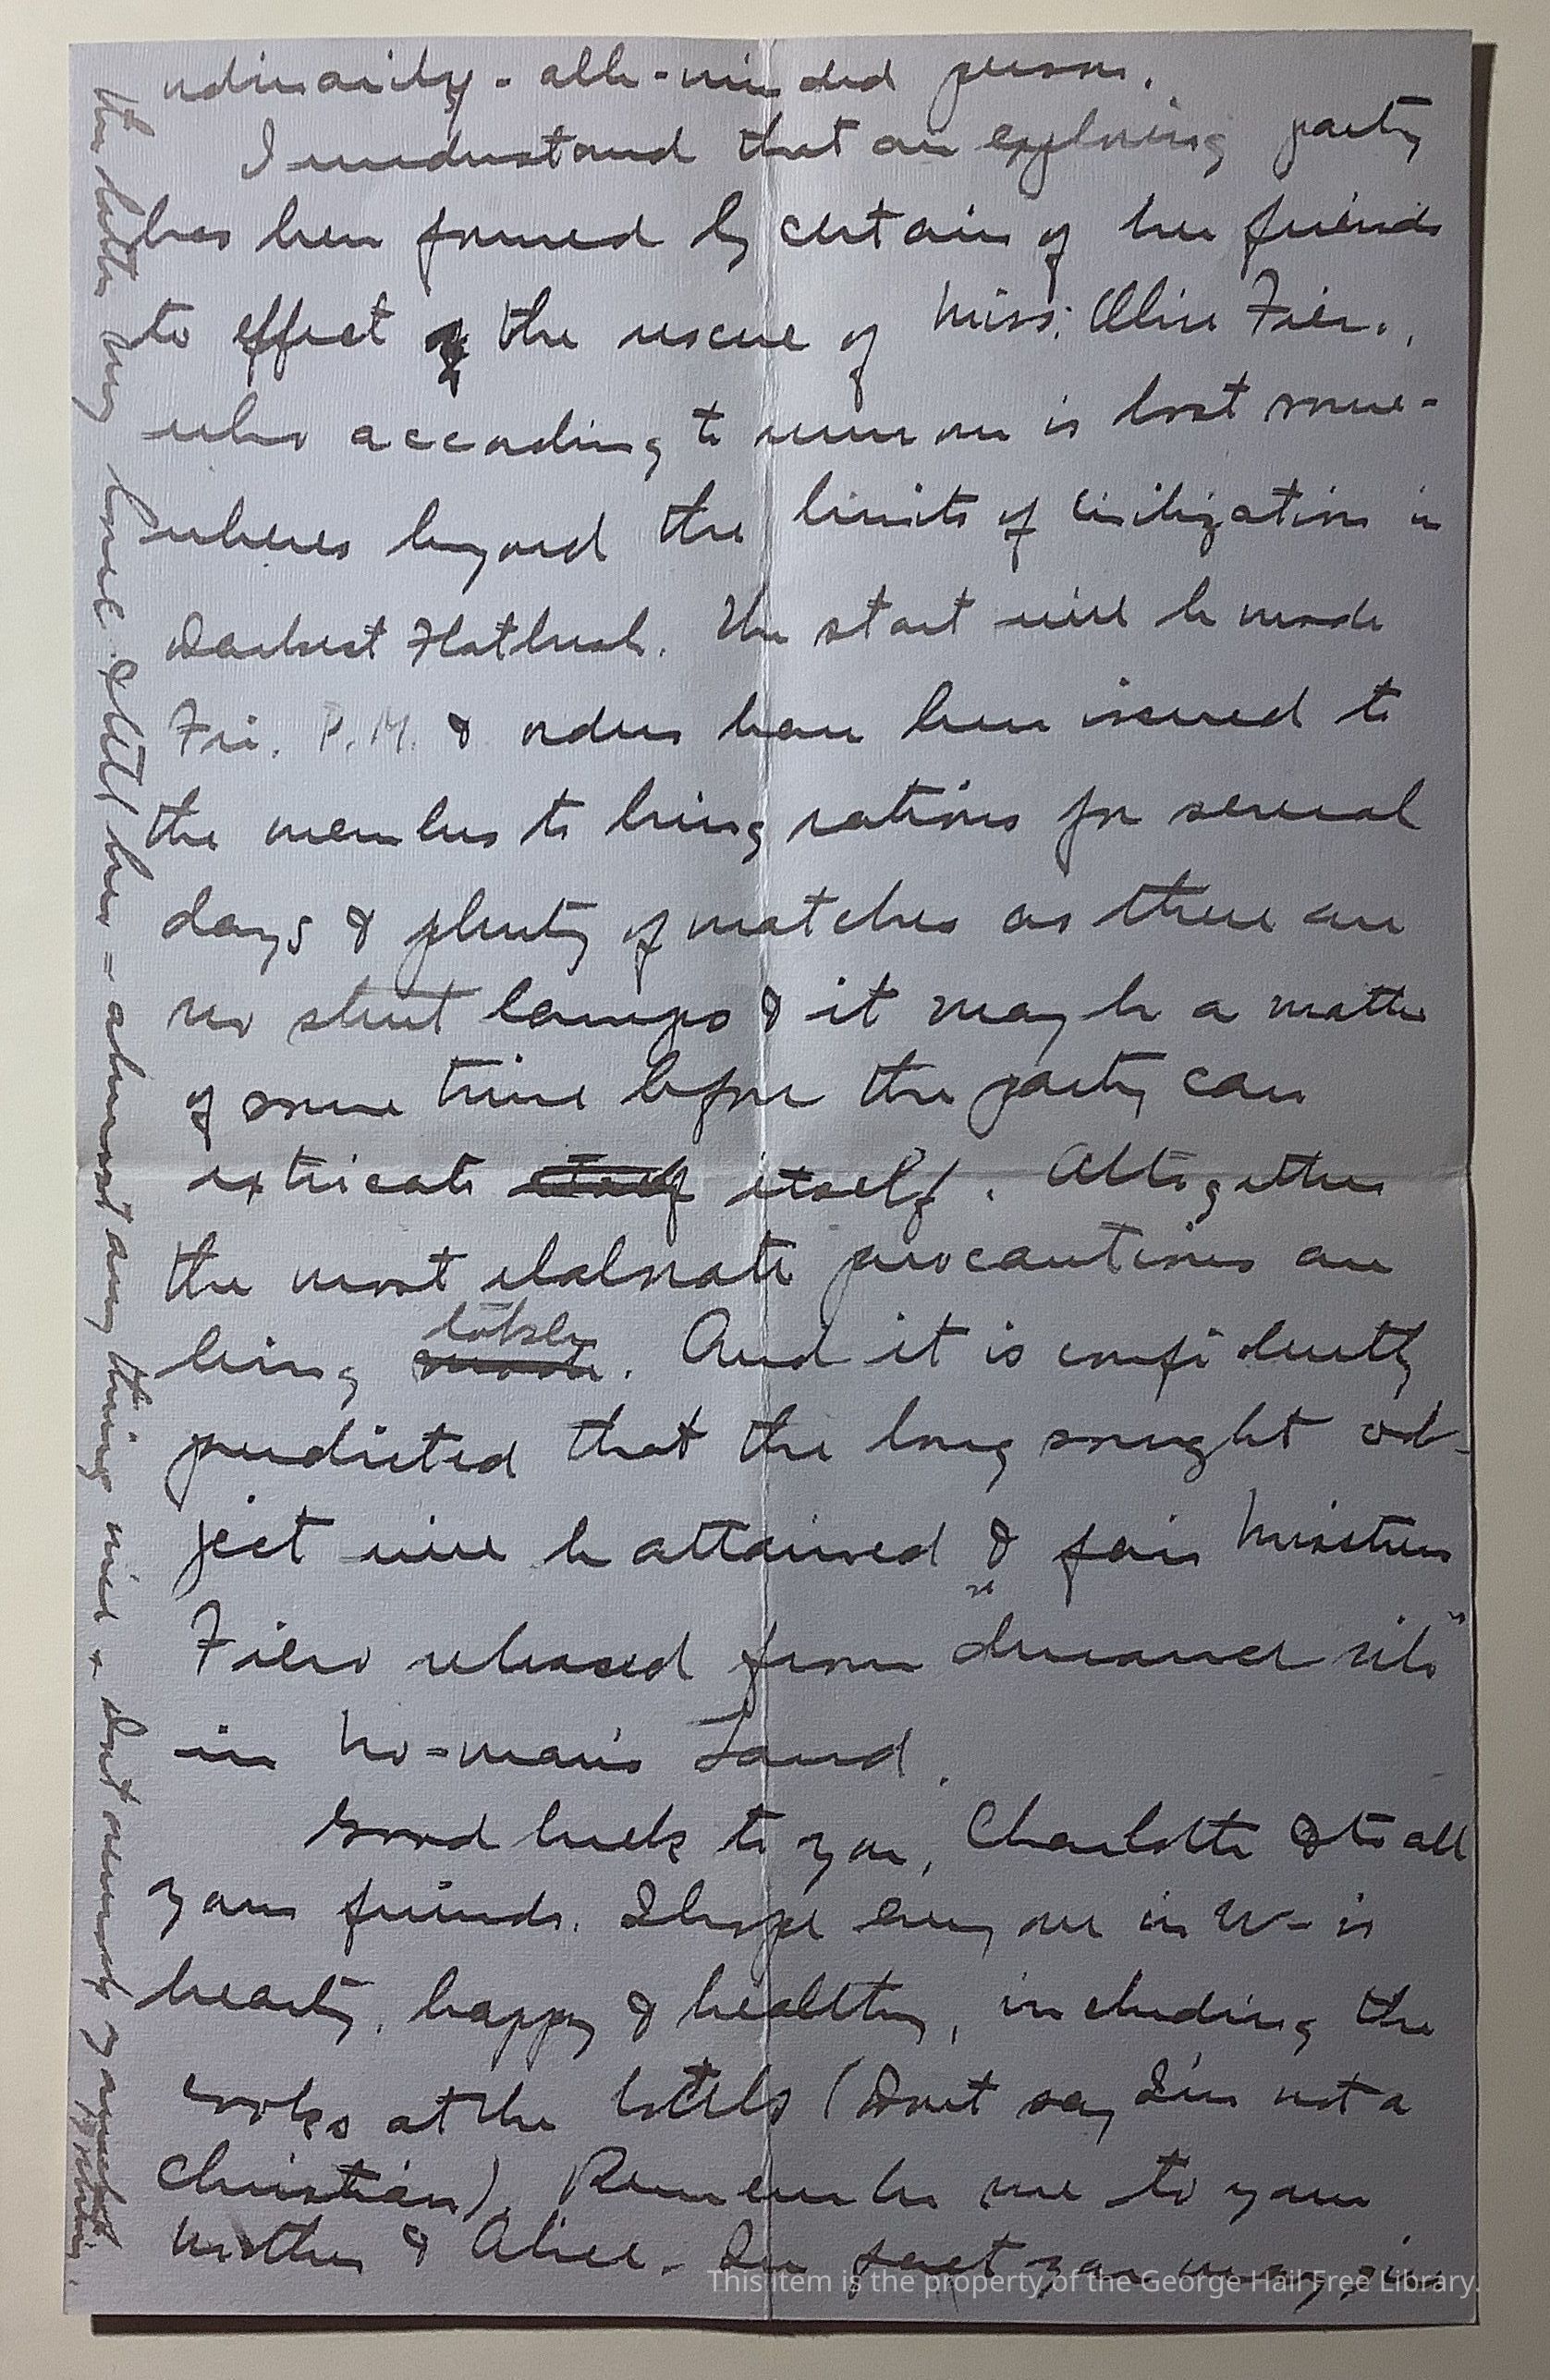 ordinarily-able-minded person.
I understand that an exploring party
has been formed by certain of her friends
to effect the rescue of Miss. Olive Fiero,
who according to rumor is lost some-
wheres beyond the limits of civilization in
Darkest Flatbush. The start will be made
Fri. P.M. & orders have been issued to
the members to bring rations for several
days & plenty of matches as there are
no street lamps & it may be a matter
of some time before the party can
extricate itself. Altogether
the most elaborate precautions are
being taken. And it is confidently
predicted that the long sought ob-
ject will be attained & fair Mistress
Fiero released from "durance vile"
in No-man's Land.
Good luck to you, Charlotte & to all
your friends. I hope every one in W- is
hearty, happy & healthy, including the
cooks at the hotels (Don't say I'm not a
Christian). Remember me to your
mother & Alice. In fact you may give
the latter my love & tell her = almost any thing nice + don't